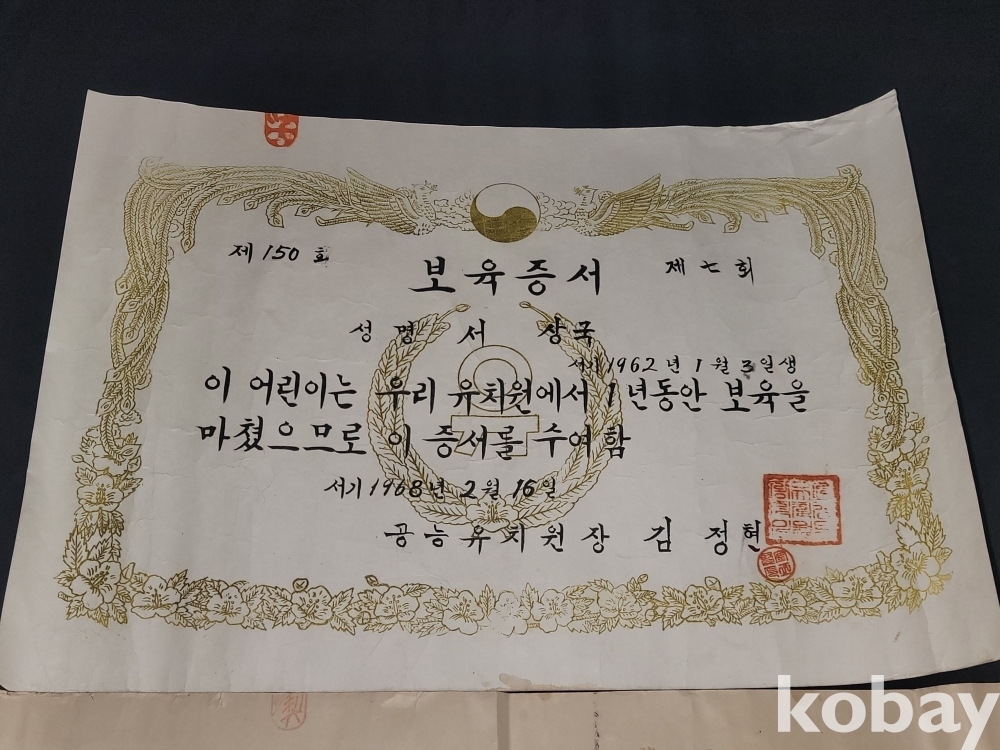 제 150 호
제 七 회
보육증서
성명 서 상국
서기 1962 년 1 월 3 일생
이 어린이는 우리 유치원에서 1 년동안 보육을
마쳤으므로 이 증서를 수여함
서기 1968 년 2 월 16 일
공능유치원장 김 정현
kobay